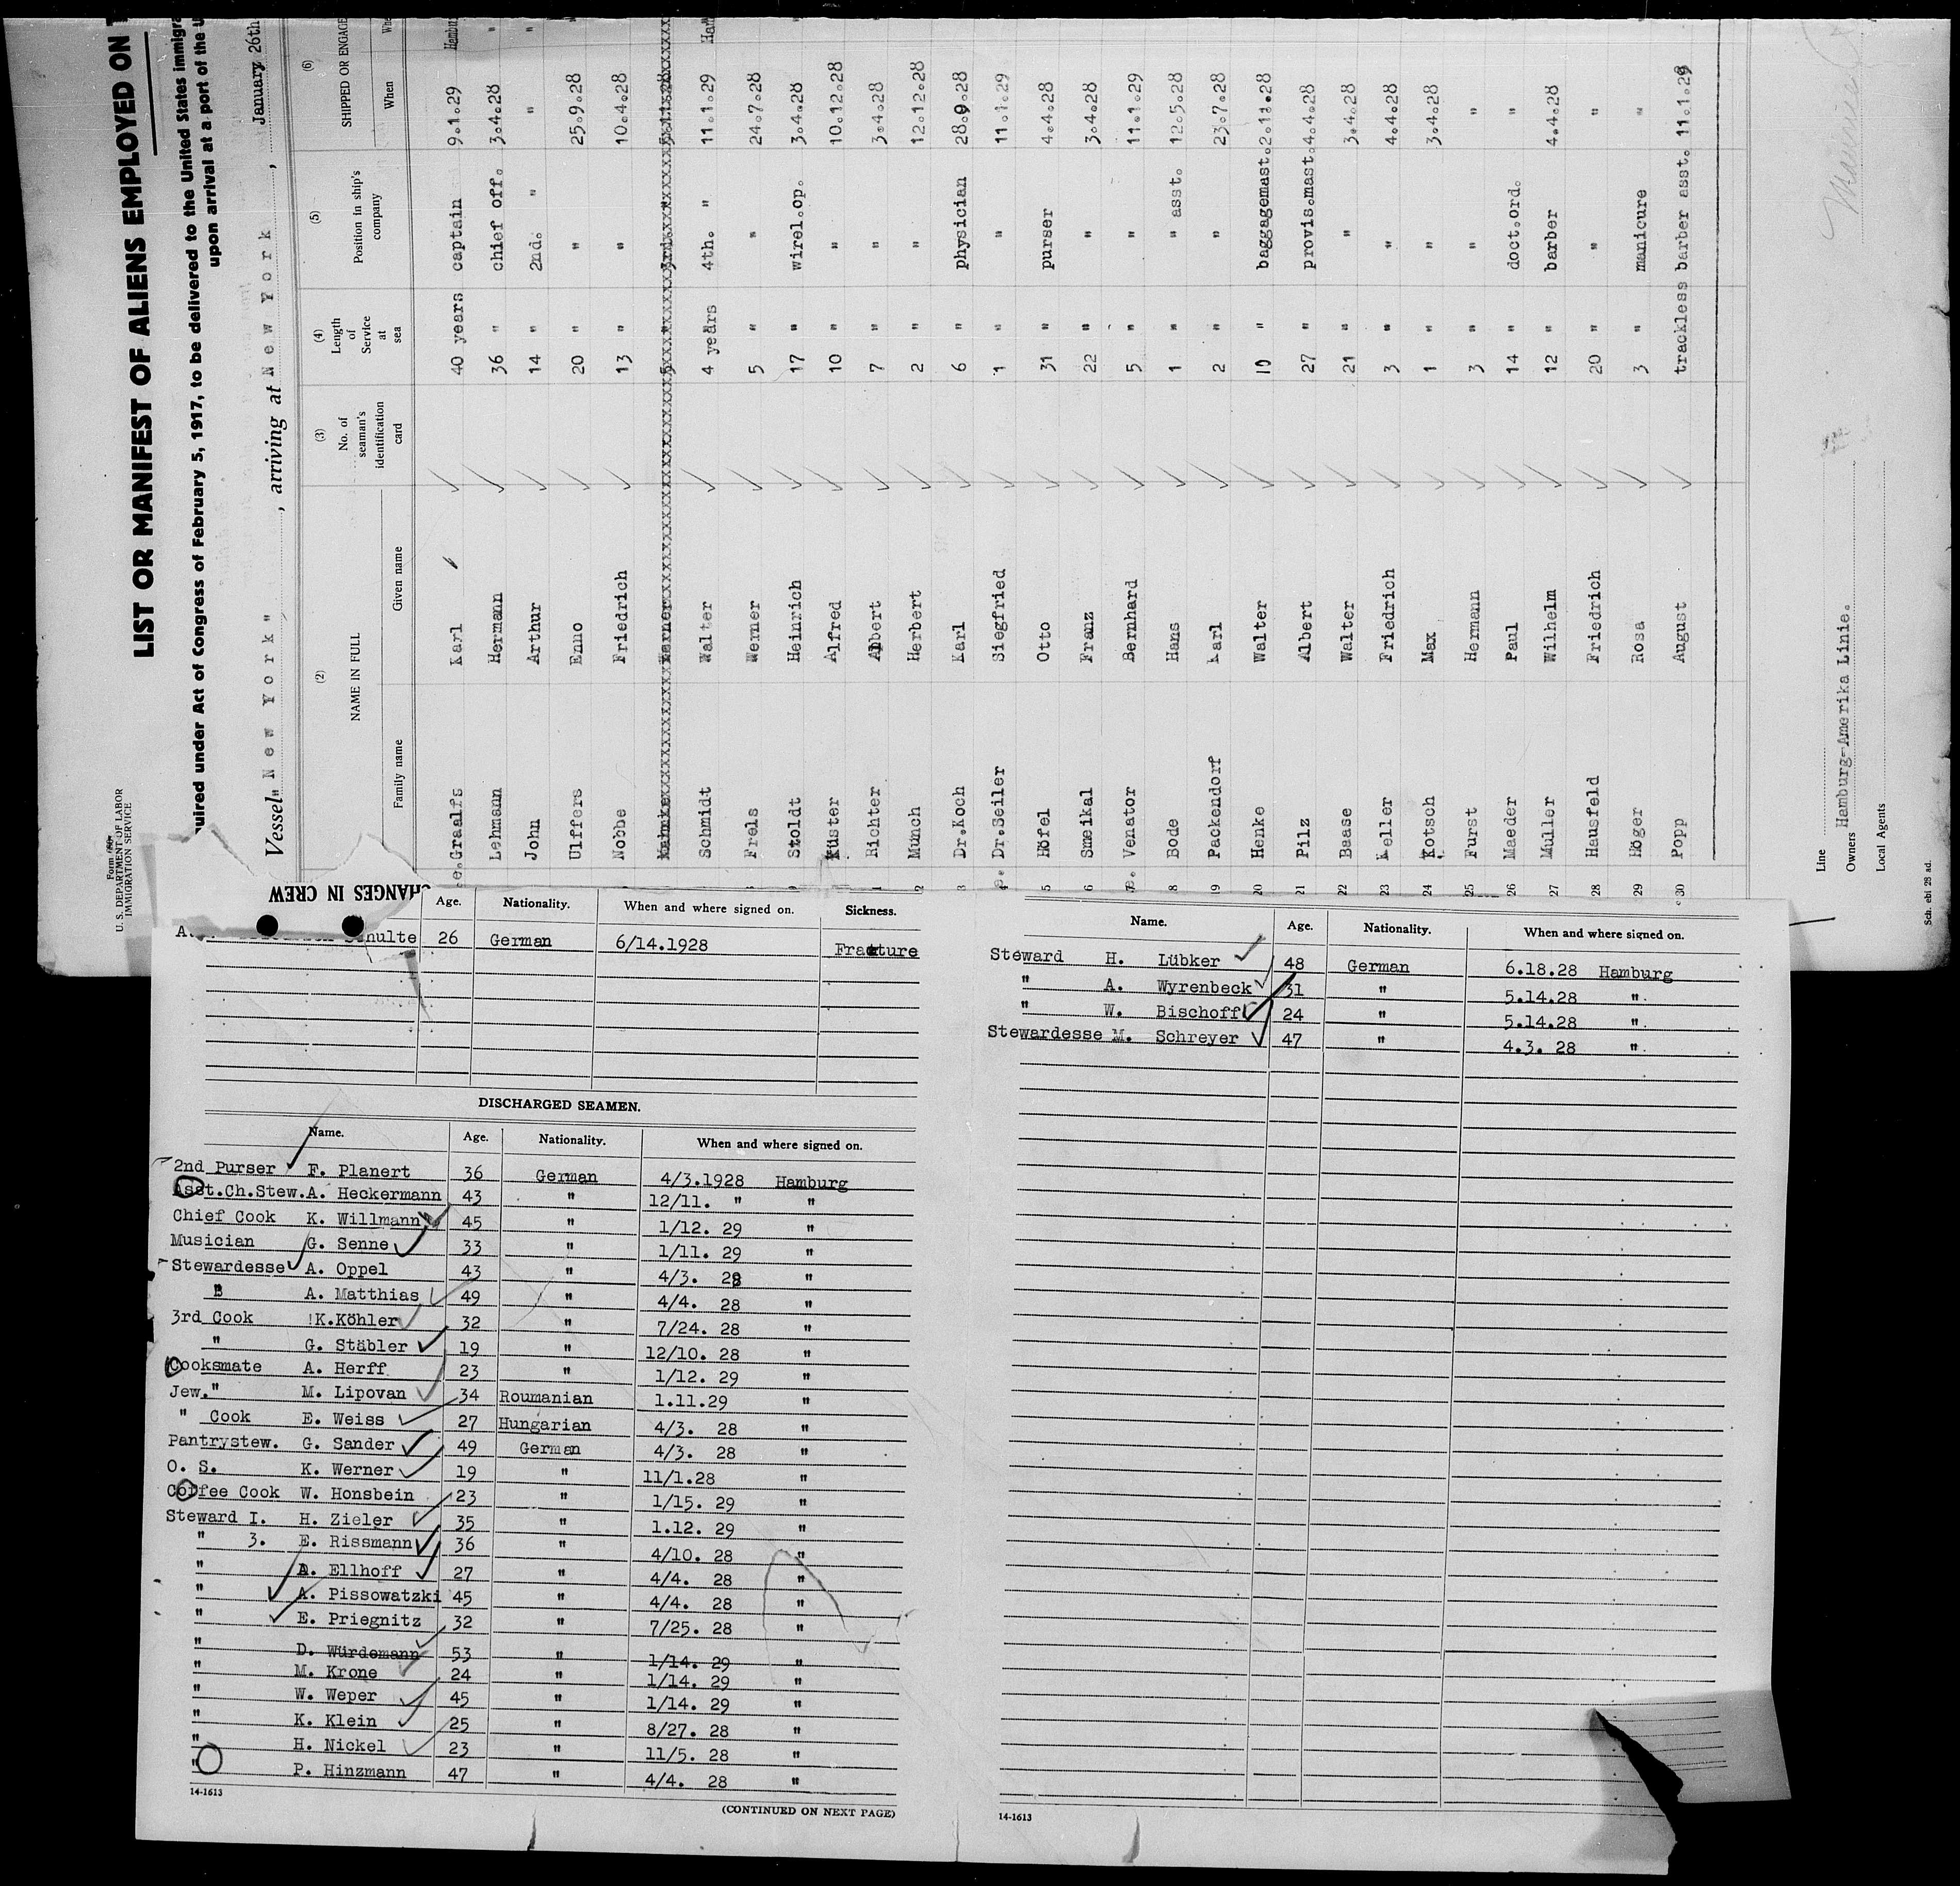 Form 680
U. S. DEPARTMENT OF LABOR
IMMIGRATION SERVICE
LIST OR MANIFEST OF ALIENS EMPLOYED ON
uired under Act of Congress of February 5, 1917, to be delivered to the United States immigra
upon arrival at a port of the U
Vessel "New York", arriving at New York, January 26th
(2) (3) (4) (5) (6)
NAME IN FULL No. of seaman's identification card Length of Service at sea Position in ship's company SHIPPED OR ENGAGE
Family name Given name When Whe
Graalfs Karl 40 years captain 9.1.29 Hambu
Lehmann Hermann 36 " chief off. 3.4.28 "
John Arthur 14 " 2nd. " " "
Ulffers Enno 20 " " 25.9.28
Nobbe Friedrich 13 " " 10.4.28
Schmidt Walter 4 years 4th. " 11.1.29 Ham
Frels Werner 5 " " 24.7.28
Stoldt Heinrich 17 " wirel.op. 3.4.28 "
Küster Alfred 10 " " 10.12.28
1 Richter Albert 7 " " 3.4.28
2 Münch Herbert 2 " " 12.12.28
3 Dr.Koch Karl 6 " physician 28.9.28
Dr.Seiler Siegfried 1 " " 11.1.29
5 Höfel Otto 31 " purser 4.4.28
6 Smeikal Franz 22 " " 3.4.28
Venator Bernhard 5 " " 11.1.29
8 Bode Hans 1 " " asst. 12.5.28
19 Packendorf Karl 2 " " 23.7.28
20 Henke Walter 10 " baggagemast. 2.11.28
21 Pilz Albert 27 " provis.mast. 4.4.28
22 Baase Walter 21 " " 3.4.28
23 Keller Friedrich 3 " " 4.4.28
24 Kotsch Max 1 " " 3.4.28
25 Furst Hermann 3 " " "
26 Maeder Paul 14 " doct.ord. "
27 Muller Wilhelm 12 " barber 4.4.28
28 Hausfeld Friedrich 20 " " "
29 Höger Rosa 3 " manicure "
30 Popp August trackless barber asst. 11.1.29
Line
Owners Hamburg-Amerika Linie.
Local Agents
Sch. ebi 28 ad.
CHANGES IN CREW
Age. Nationality. When and where signed on. Sickness.
Schulte 26 German 6/14.1928 Fracture
DISCHARGED SEAMEN.
Name. Age. Nationality. When and where signed on.
2nd Purser F. Planert 36 German 4/3.1928 Hamburg
Asst.Ch.Stew. A. Heckermann 43 " 12/11. " "
Chief Cook K. Willmann 45 " 1/12. 29 "
Musician G. Senne 33 " 1/11. 29 "
Stewardesse A. Oppel 43 " 4/3. 28 "
" A. Matthias 49 " 4/4. 28 "
3rd Cook K.Köhler 32 " 7/24. 28 "
" G. Stäbler 19 " 12/10. 28 "
Cooksmate A. Herff 23 " 1/12. 29 "
Jew." M. Lipovan 34 Roumanian 1.11.29 "
" Cook E. Weiss 27 Hungarian 4/3. 28 "
Pantrystew. G. Sander 49 German 4/3. 28 "
O. S. K. Werner 19 " 11/1.28 "
Coffee Cook W. Honsbein 23 " 1/15. 29 "
Steward I. H. Zieler 35 " 1.12. 29 "
" 3. E. Rissmann 36 " 4/10. 28 "
" Ellhoff 27 " 4/4. 28 "
" A. Pissowatzki 45 " 4/4. 28 "
" E. Priegnitz 32 " 7/25. 28 "
" D. Würdemann 53 " 1/14. 29 "
" M. Krone 24 " 1/14. 29 "
" W. Weper 45 " 1/14. 29 "
" K. Klein 25 " 8/27. 28 "
" H. Nickel 23 " 11/5. 28 "
" P. Hinzmann 47 " 4/4. 28 "
14-1613
(CONTINUED ON NEXT PAGE)
Name. Age. Nationality. When and where signed on.
Steward H. Lübker 48 German 6.18.28 Hamburg
" A. Wyrenbeck 31 " 5.14.28 "
" W. Bischoff 24 " 5.14.28 "
Stewardesse M. Schreyer 47 " 4.3. 28 "
14-1613